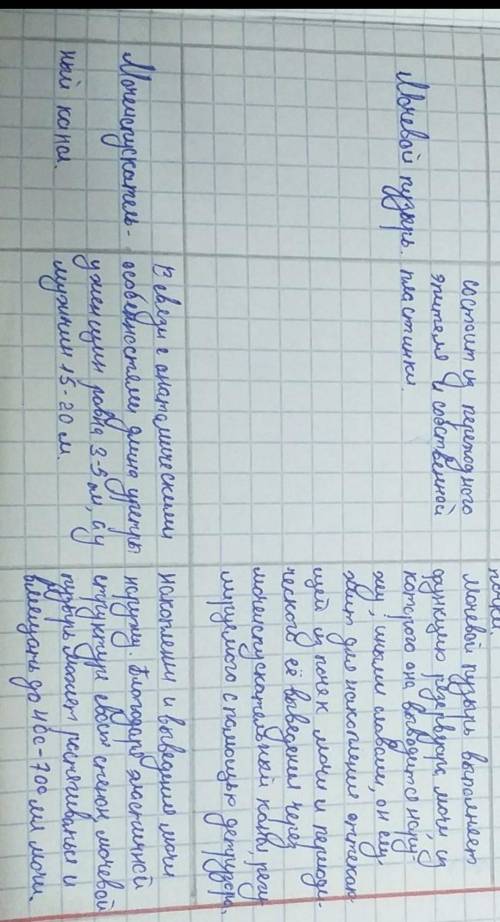 Мочевой пузырь.
состоит из переходного
эпителя и собственной
пластинки.
мочевой пузырь выполняет
функцию резервуара мочи, из
которого она выводится нару-
жу, иными словами, он слу
жит для накопления оттекаю
щей из почек мочи и периоди-
ческого её выведения через
мочеиспускательный канал, регу
лируемого с помощью детрузора,
Мочеиспускатель-
ный канал.
В связи с анатомическими
особенностями длина уретры
у женщин равна 3-5 м, а у
мужчин 15-20 м.
накоплении и выведение мочи
наружу. благодаря эластичной
структуре своих стенок мочевой
пузырь может растягиваться и
вмещать до 400-700 мл мочи.